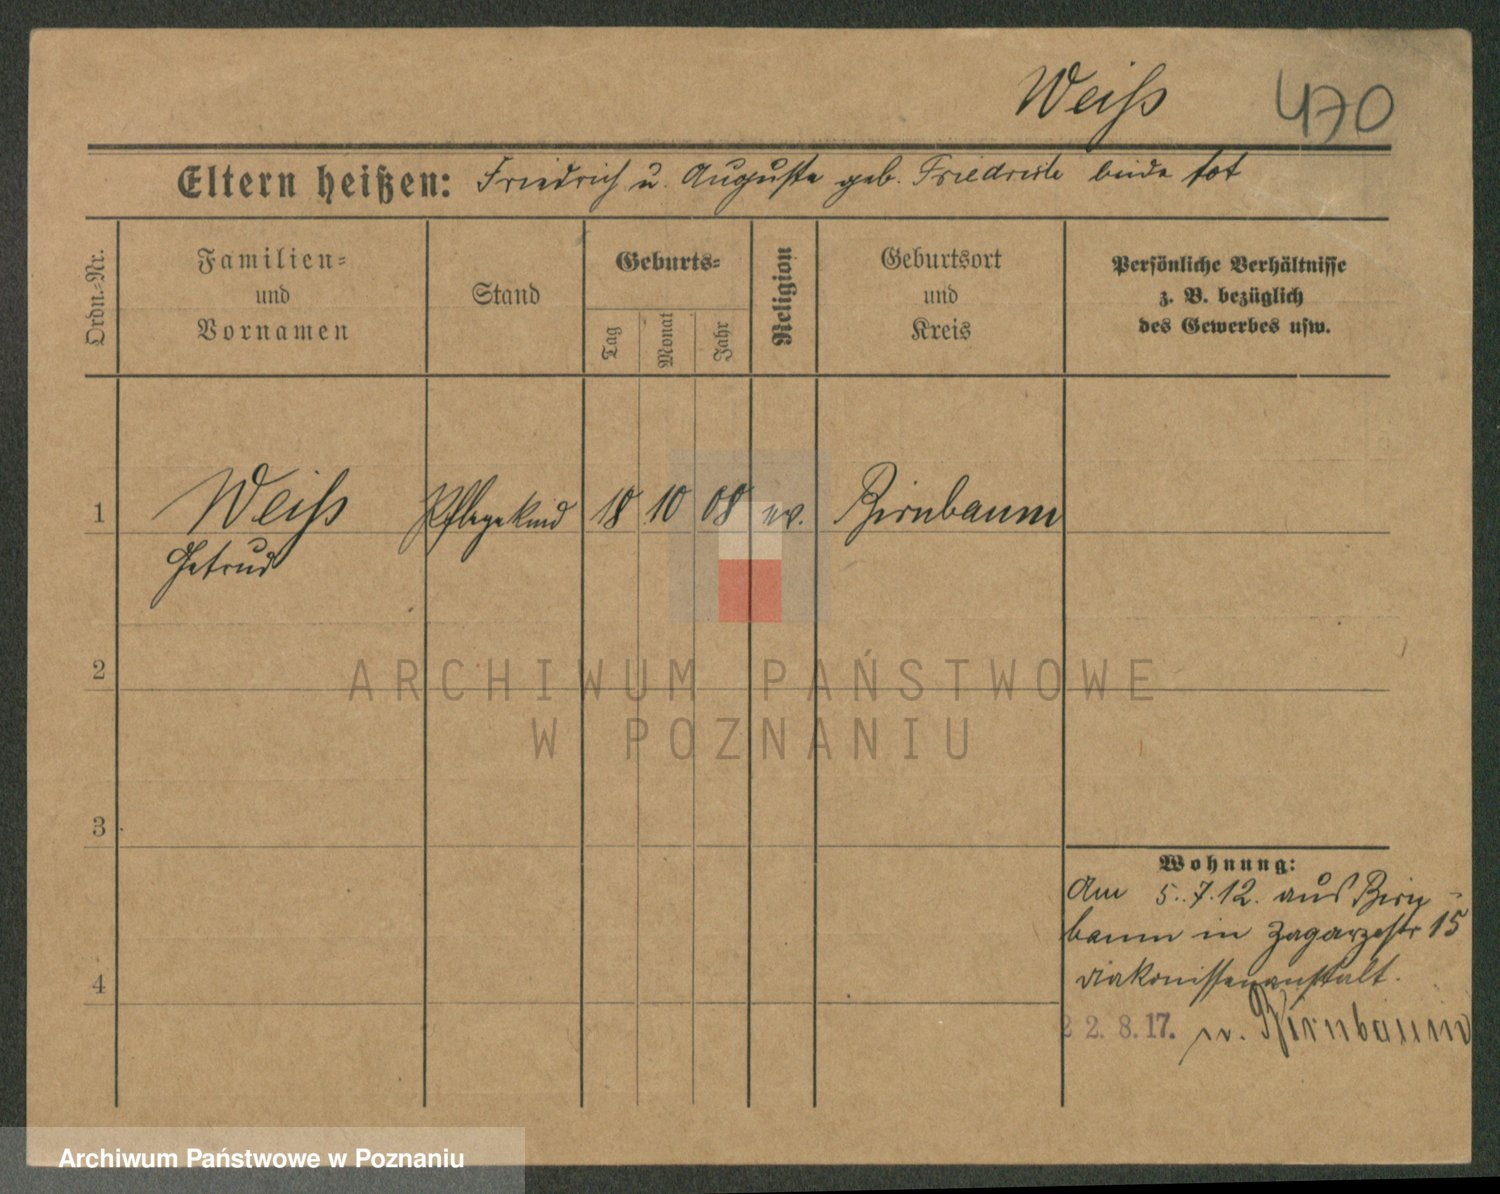 Weiß 470
Eltern heißen: Friedrich u. Auguste geb. Friedrich beide tot
Ordn.-Nr.
Familien-
und
Vornamen
Stand
Geburts-
Tag
Monat
Jahr
Religion
Geburtsort
und
Kreis
Persönliche Verhältnisse
z. B. bezüglich
des Gewerbes usw.
1 Weiß Pflegekind 18 10 08 ev. Birnbaum
Getrud
2
3
4
Wohnung:
Am 5.7.12. aus Birn-
baum in Zagorzestr 15
Diakonissenanstalt.
22.8.17. n. Birnbaum
ARCHIWUM PAŃSTWOWE
W POZNANIU
Archiwum Państwowe w Poznaniu